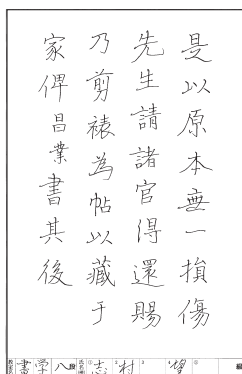 是以原本無一損傷
先生請諸官得還賜
乃剪裱為帖以藏于
家俾昌業書其後
学書
八段
志村